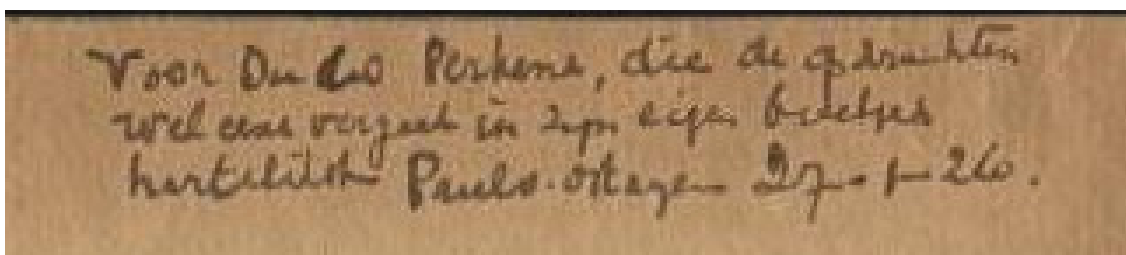 Voor Du Perkens, die de gedachten
wel eens vergeet in zijn eigen boekjes
hartelijk Paul v. Ostayen 27-1-26.